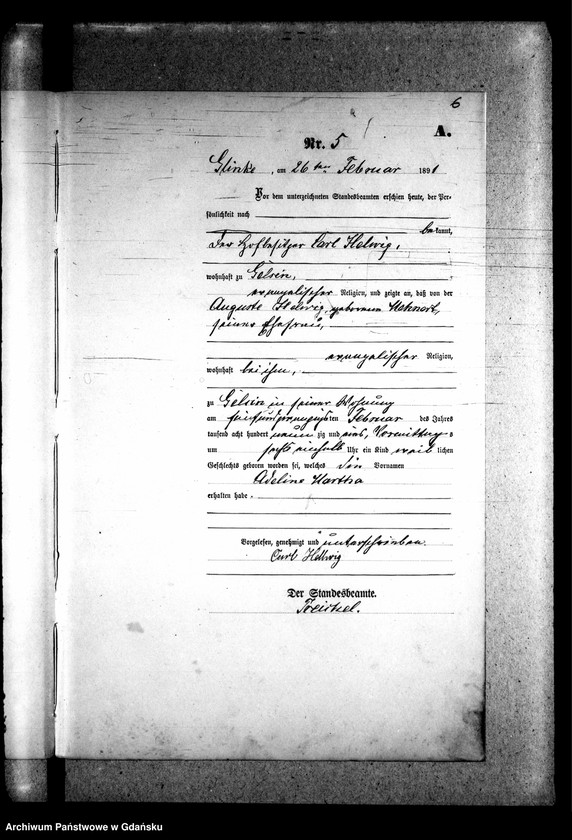 6
A.
Nr. 5
Glinke, am 26ten Februar 1891
Vor dem unterzeichneten Standesbeamten erschien heute, der Per-
sönlichkeit nach
bekannt,
der Hofbesitzer Carl Helwig,
wohnhaft zu Gelsin,
evangelischer Religion, und zeigte an, daß von der
Auguste Helwig, geborenen Mehnert,
seiner Ehefrau,
evangelischer Religion,
wohnhaft bei ihm,
zu Gelsin in seiner Wohnung
am fünfundzwanzigsten Februar des Jahres
tausend acht hundert neunzig und eins, Vormittags
um sechs einhalb Uhr ein Kind weiblichen
Geschlechts geboren worden sei, welches die Vornamen
Adeline Martha
erhalten habe.
Vorgelesen, genehmigt und unterschrieben.
Carl Hellwig
Der Standesbeamte.
Archiwum Państwowe w Gdańsku